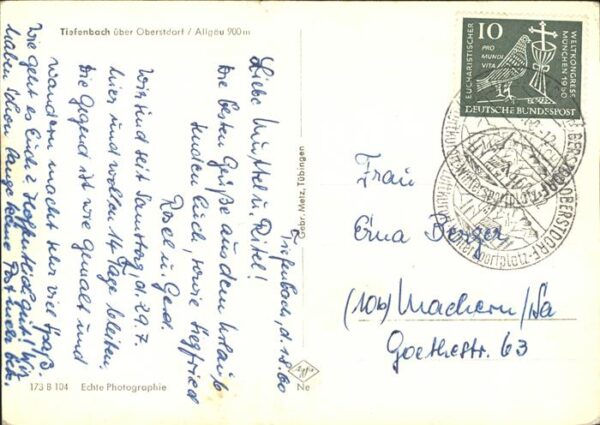 Tiefenbach über Oberstdorf / Allgäu 900m
Tiefenbach, d. 1.8.60
Liebe Muttel u. Ritel!
Die besten Grüße aus dem Urlaub
senden Euch, sowie Siegfried
Rosel u. Gerd.
Wir sind seit Samstag, d. 29.7.
hier und wollen 14 Tage bleiben.
Die Gegend ist wie gemalt und
wandern macht hier viel Spaß.
Wie geht es Euch? Hoffentlich gut! Wir
haben schon lange keine Post mehr
173 B 104 Echte Photographie
Gebr. Metz, Tübingen
Ne
10
PRO
MUNDI
VITA
EUCHARISTISCHER
WELTKONGRESS
MÜNCHEN 1960
DEUTSCHE BUNDESPOST
OBERSTDORF
Frau
Erna Berger
(10b) Machern/Sa
Goethestr. 63